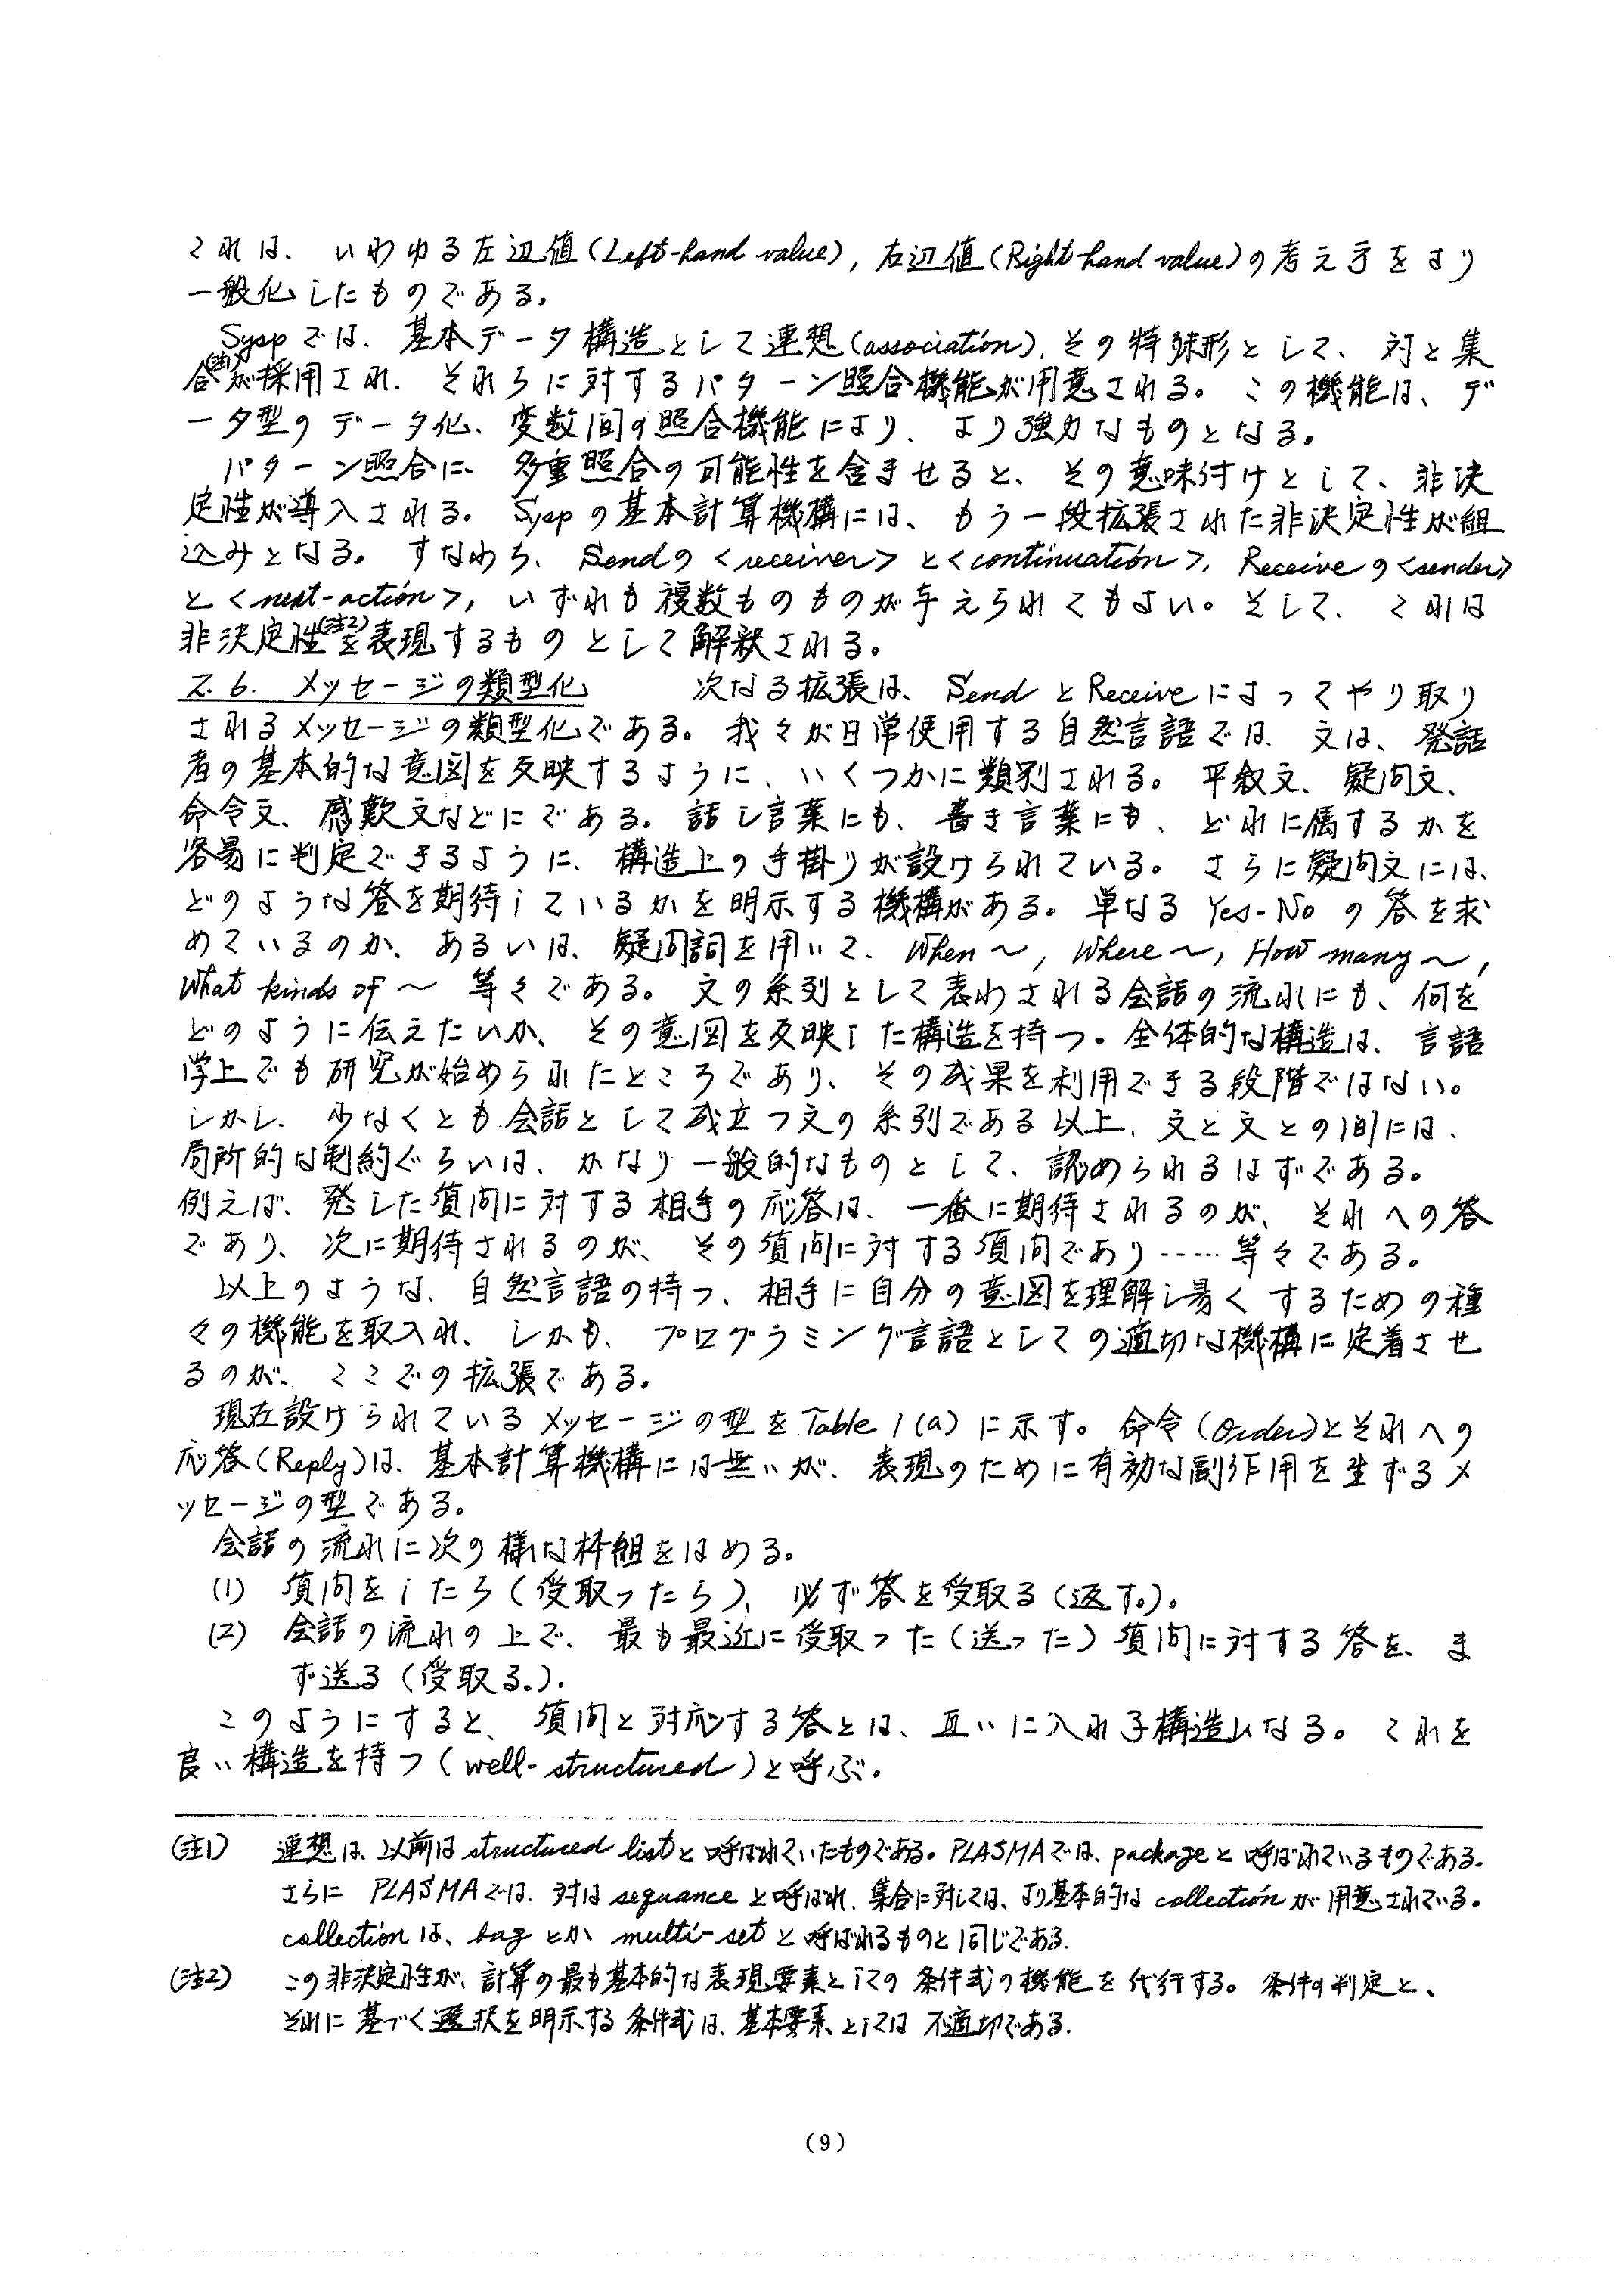 これは、いわゆる左辺値(Left-hand value), 右辺値(Right-hand value)の考え方をより
一般化したものである。
Syspでは、基本データ構造として連想(association), その特殊形として、対と集
合(注1)が採用され、それらに対するパターン照合機能が用意される。この機能は、デ
ータ型のデータ化、変数間の照合機能により、より強力なものとなる。
パターン照合に、多重照合の可能性を含ませると、その意味付けとして、非決
定性が導入される。Syspの基本計算機構には、もう一段拡張された非決定性が組
込みとなる。すなわち、Sendの<receiver>と<continuation>, Receiveの<sender>
と<next-action>, いずれも複数ものものが与えられてもよい。そして、これは
非決定性(注2)を表現するものとして解釈される。
2.6. メッセージの類型化 次なる拡張は、SendとReceiveによってやり取り
されるメッセージの類型化である。我々が日常使用する自然言語では、文は、発話
者の基本的な意図を反映するように、いくつかに類別される。平叙文、疑問文、
命令文、感歎文などにである。話し言葉にも、書き言葉にも、どれに属するかを
容易に判定できるように、構造上の手掛りが設けられている。さらに疑問文には、
どのような答を期待しているかを明示する機構がある。単なるYes-Noの答を求
めているのか、あるいは、疑問詞を用いて、When〜, Where〜, How many〜,
What kinds of〜 等々である。文の系列として表わされる会話の流れにも、何を
どのように伝えたいか、その意図を反映した構造を持つ。全体的な構造は、言語
学上でも研究が始められたところであり、その成果を利用できる段階ではない。
しかし、少なくとも会話として成立つ文の系列である以上、文と文との間には、
局所的な制約ぐらいは、かなり一般的なものとして、認められるはずである。
例えば、発した質問に対する相手の応答は、一番に期待されるのが、それへの答
であり、次に期待されるのが、その質問に対する質問であり……等々である。
以上のような、自然言語の持つ、相手に自分の意図を理解し易くするための種
々の機能を取入れ、しかも、プログラミング言語としての適切な機構に定着させ
るのが、ここでの拡張である。
現在設けられているメッセージの型をTable 1(a)に示す。命令(Order)とそれへの
応答(Reply)は、基本計算機構には無いが、表現のために有効な副作用を生ずるメ
ッセージの型である。
会話の流れに次の様な枠組をはめる。
(1) 質問をしたら(受取ったら)、必ず答を受取る(返す。)。
(2) 会話の流れの上で、最も最近に受取った(送った)質問に対する答を、ま
ず送る(受取る。)。
このようにすると、質問と対応する答とは、互いに入れ子構造になる。これを
良い構造を持つ(well-structured)と呼ぶ。
(注1) 連想は、以前はstructured listと呼ばれていたものである。PLASMAでは、packageと呼ばれているものである。
さらにPLASMAでは、対はsequanceと呼ばれ、集合に対しては、より基本的なcollectionが用意されている。
collectionは、bagとかmulti-setと呼ばれるものと同じである.
(注2) この非決定性が、計算の最も基本的な表現要素としての条件式の機能を代行する。条件の判定と、
それに基づく選択を明示する条件式は、基本要素としては不適切である.
(9)